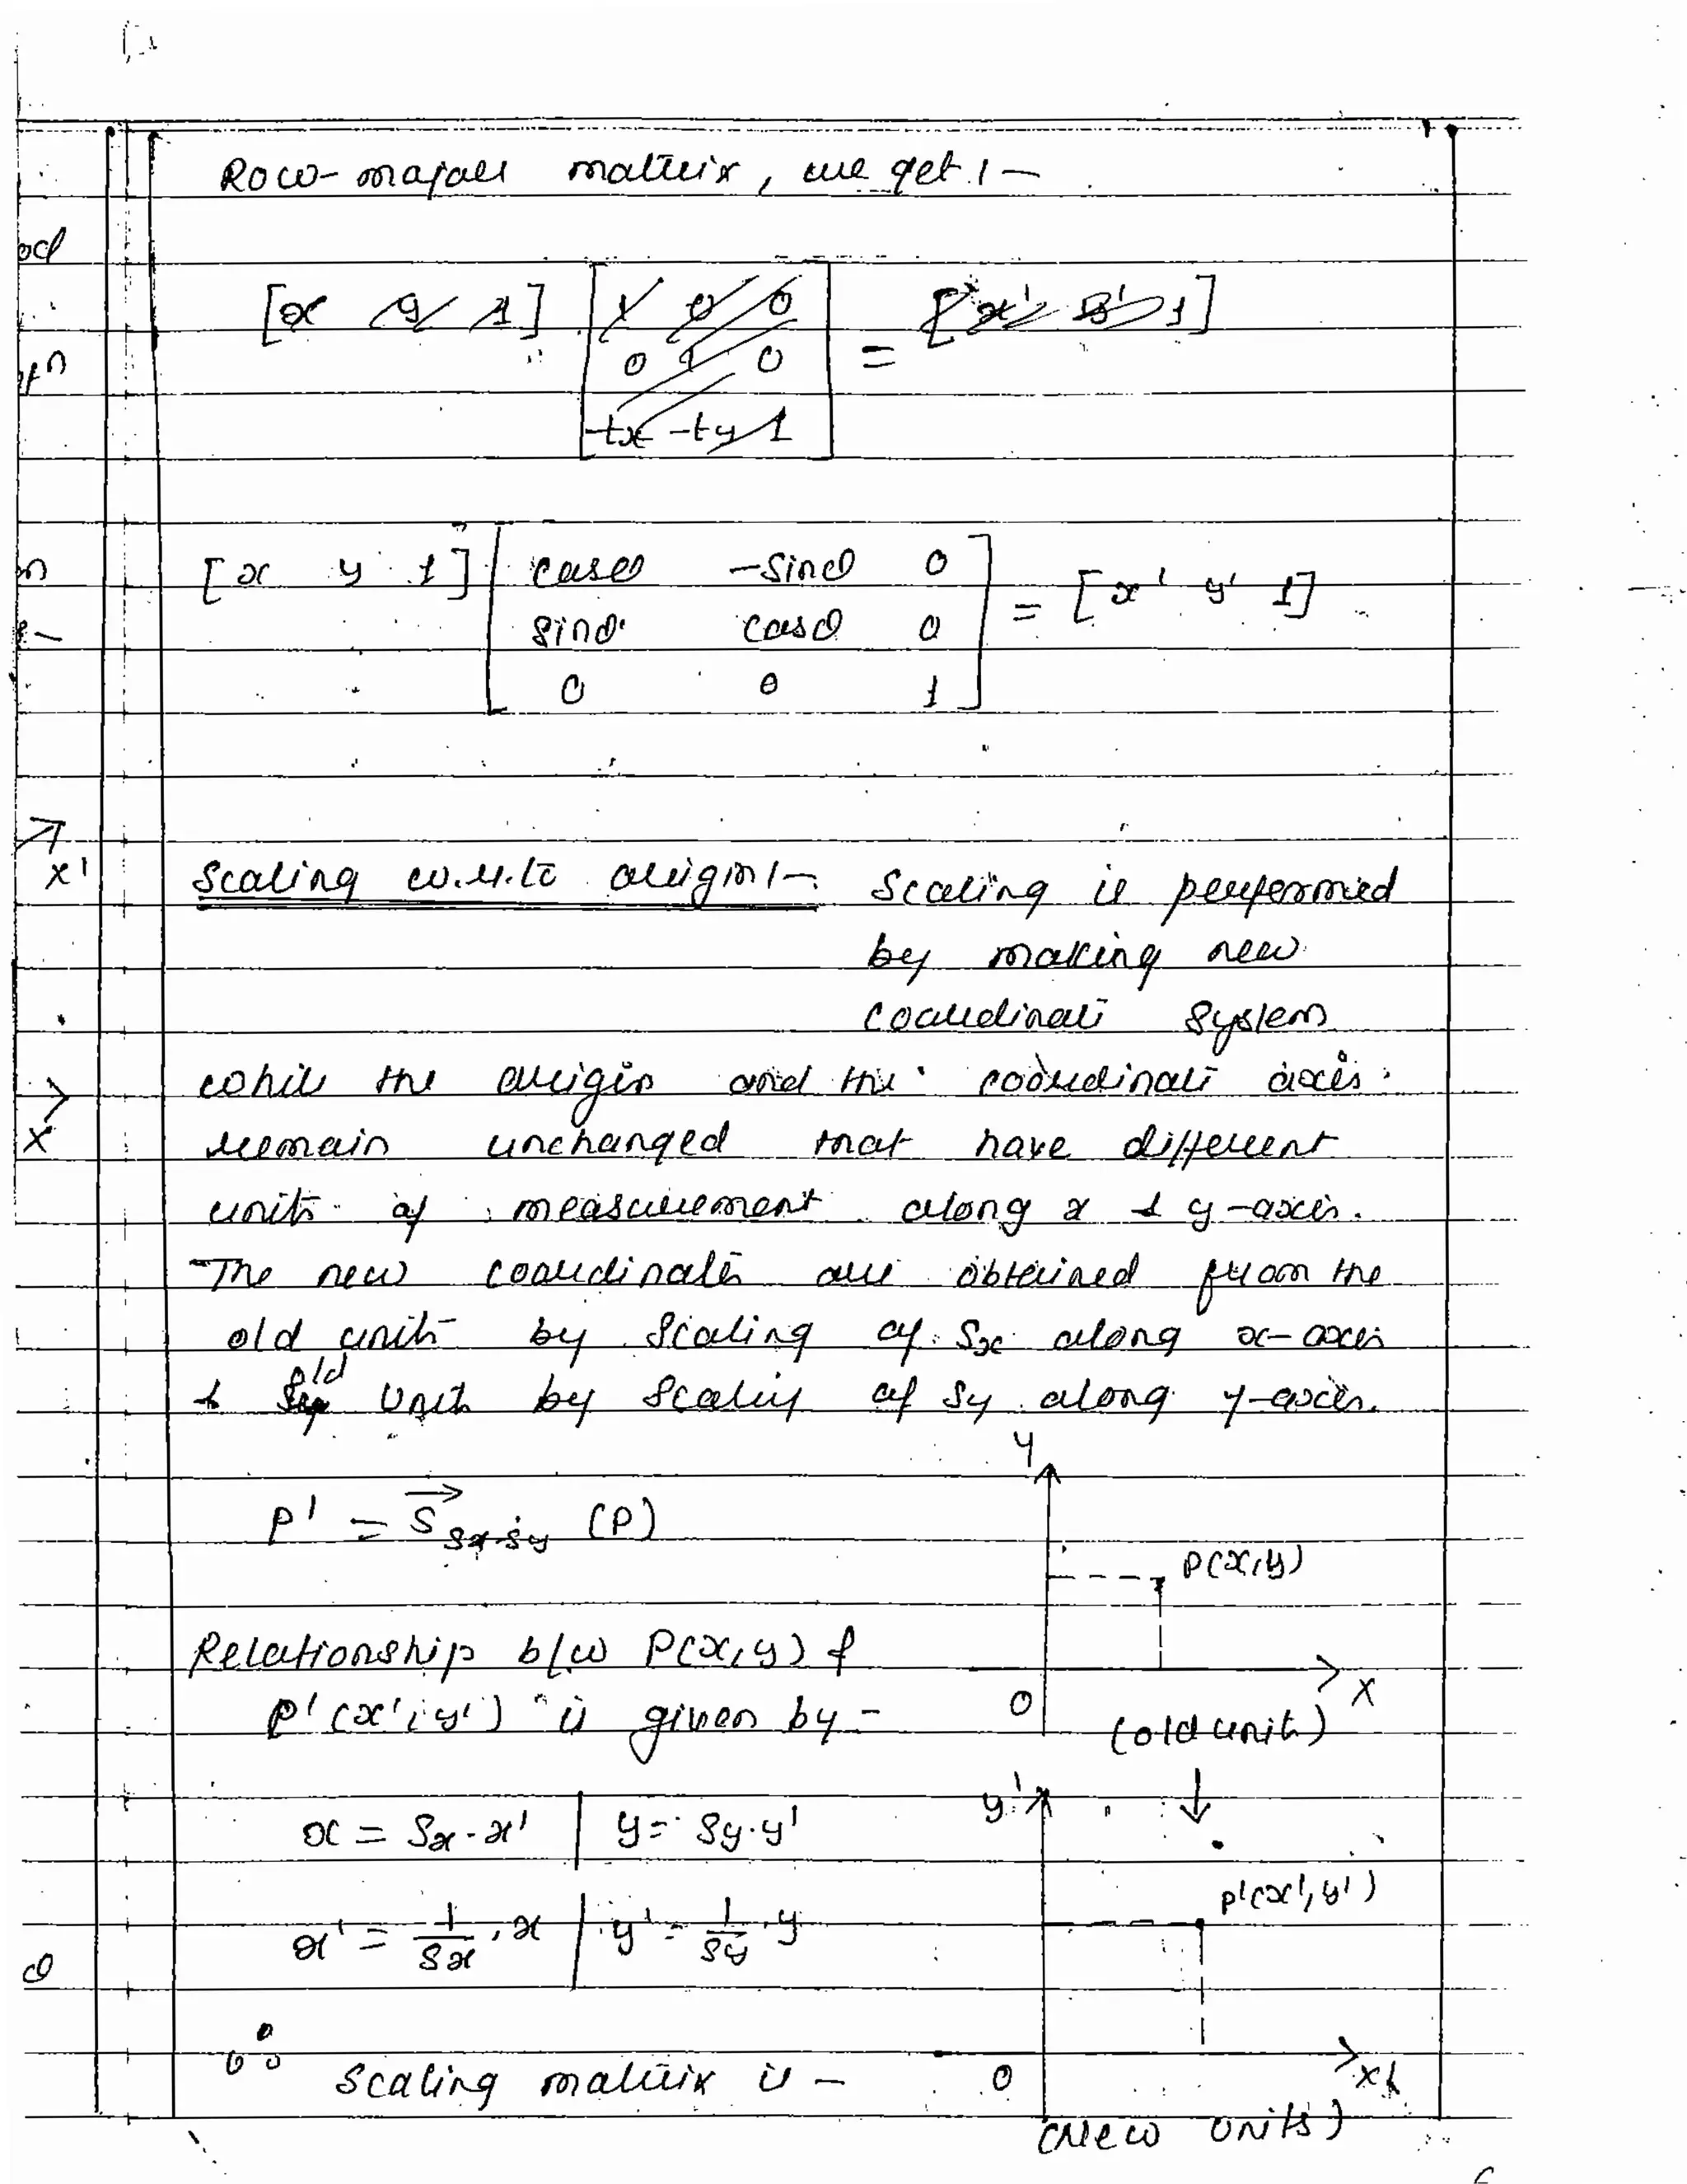 Row-major matrix, we get :-
[x y 1] [1 0 0
0 1 0
-tx -ty 1] = [x' y' 1]
[x y 1] [cosθ -sinθ 0
sinθ cosθ 0
0 0 1] = [x' y' 1]
Scaling w.r.to origin :- Scaling is performed
by making new
coordinate system
while the origin and the coordinate axis
remain unchanged that have different
units of measurement along x & y-axis.
The new coordinates are obtained from the
old units by scaling of Sx along x-axis
& old unit by scaling of Sy along y-axis.
P' = S Sx.Sy (P)
Relationship b/w P(x,y) &
P'(x',y') is given by -
x = Sx.x' | y = Sy.y'
x' = 1/Sx . x | y' = 1/Sy . y
∴ Scaling matrix is -
Y
P(x,y)
O
X
(old unit)
y'
P'(x',y')
O
x'
(New units)
x'
X
θ